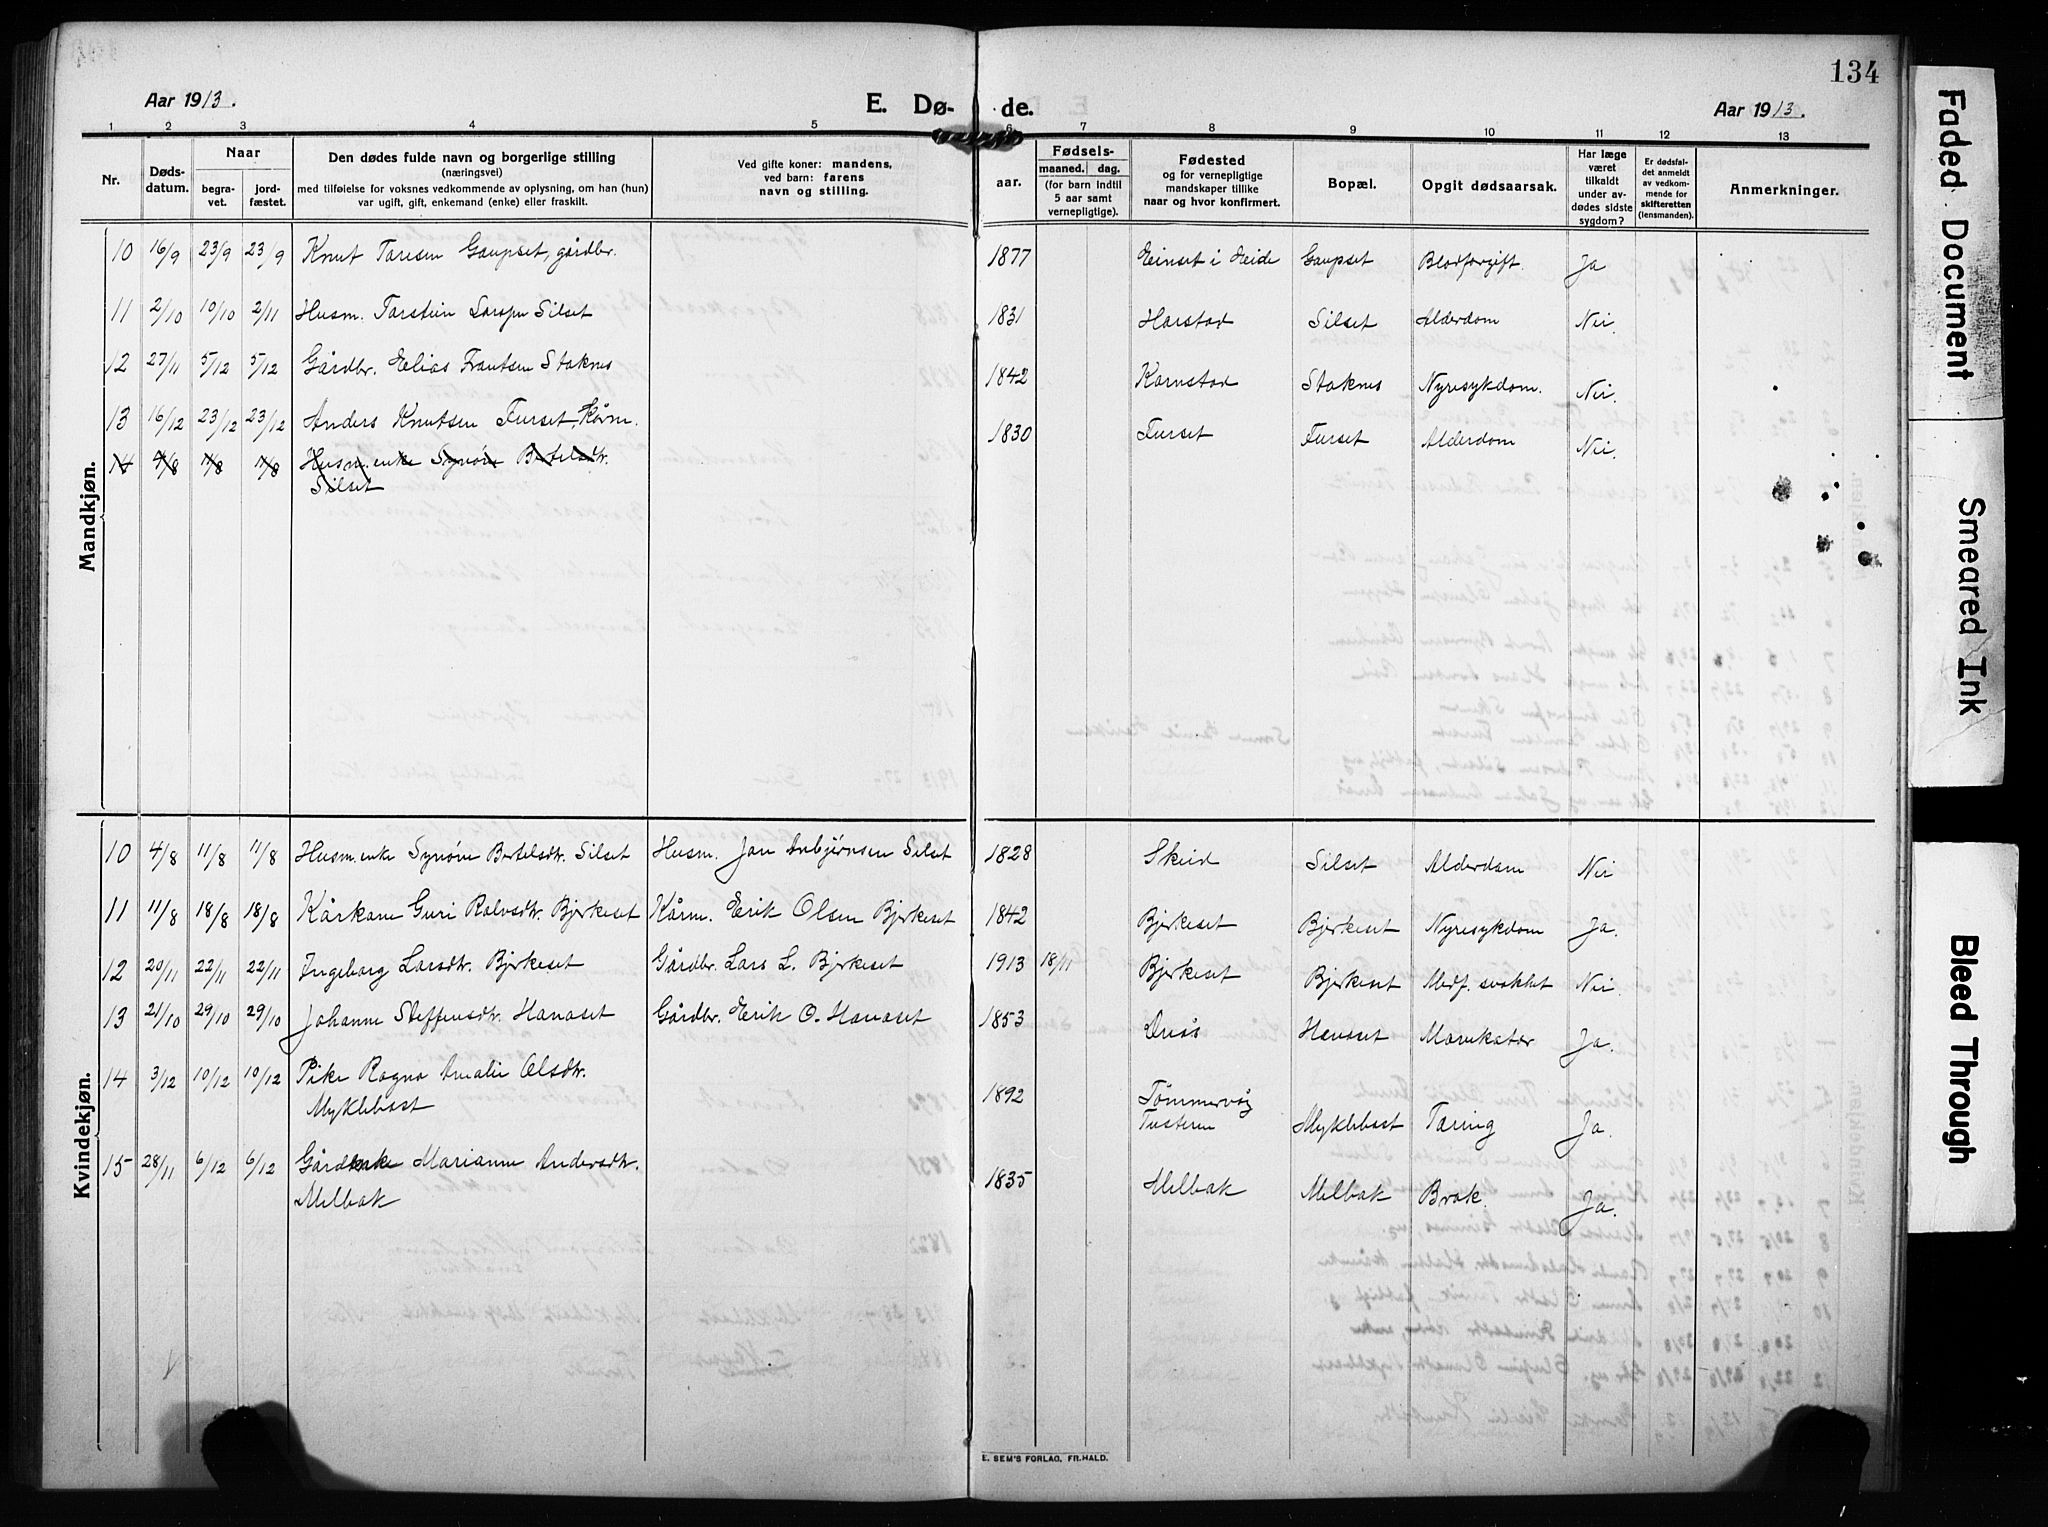 134
Aar 1913.
E. Dø-
de.
Aar 1913.
1 2 3 4 5 6 7 8 9 10 11 12 13
Nr.
Døds-
datum.
Naar
begra-
vet.
jord-
fæstet.
Den dødes fulde navn og borgerlige stilling
(næringsvei)
med tilføielse for voksnes vedkommende av oplysning, om han (hun)
var ugift, gift, enkemand (enke) eller fraskilt.
Ved gifte koner: mandens,
ved barn: farens
navn og stilling.
aar.
Fødsels-
maaned. dag.
(for barn indtil
5 aar samt
vernepligtige).
Fødested
og for vernepligtige
mandskaper tillike
naar og hvor konfirmert.
Bopæl.
Opgit dødsaarsak.
Har læge
været
tilkaldt
under av-
dødes sidste
sygdom?
Er dødsfal-
det anmeldt
av vedkom-
mende for
skifteretten
(lensmanden).
Anmerkninger.
Mandkjøn.
10 16/9 23/9 23/9 Knut Taresen Gaupset, gårdbr. 1877 Einset i Eide Gaupset Blodforgift. Ja
11 2/10 10/10 2/11 Husm. Torstein Larsen Silset 1831 Harstad Silset Alderdom Nei
12 27/11 5/12 5/12 Gårdbr. Elias Frantsen Stoknes 1842 Kornstad Stoknes Nyresykdom. Nei.
13 16/12 23/12 23/12 Anders Knutsen Furset, Kårm. 1830 Furset Furset Alderdom Nei.
14 4/8 11/8 11/8 Husm.enke Synøve Bertelsdtr.
Silset
Kvindekjøn.
10 4/8 11/8 11/8 Husm.enke Synøve Bertelsdtr. Silset Husm. Jon Anbjørnsen Silset 1828 Skeid Silset Alderdom Nei
11 11/8 18/8 18/8 Kårkone Guri Rolvsdtr. Bjerkeset Kårm. Erik Olsen Bjerkeset 1842 Bjerkeset Bjerkeset Nyresykdom Ja.
12 20/11 22/11 22/11 Ingeborg Larsdtr. Bjerkeset Gårdbr. Lars L. Bjerkeset 1913 18/11 Bjerkeset Bjerkeset Medf. svakhet Nei.
13 21/10 29/10 29/10 Johanne Steffensdtr. Hanaset Gårdbr. Erik O. Hanaset 1853 Ørsös Hanaset Mavekatar Ja.
14 3/12 10/12 10/12 Pike Ragna Amalie Olsdtr.
Myklebost 1892 Tømmervåg
Tusteren Myklebost Tæring Ja.
15 28/11 6/12 6/12 Gårdkone Marianne Andersdtr.
Melbak 1835 Melbak Melbak Brok. Ja.
E. SEM'S FORLAG, FR.HALD.
Faded Document
Smeared Ink
Bleed Through